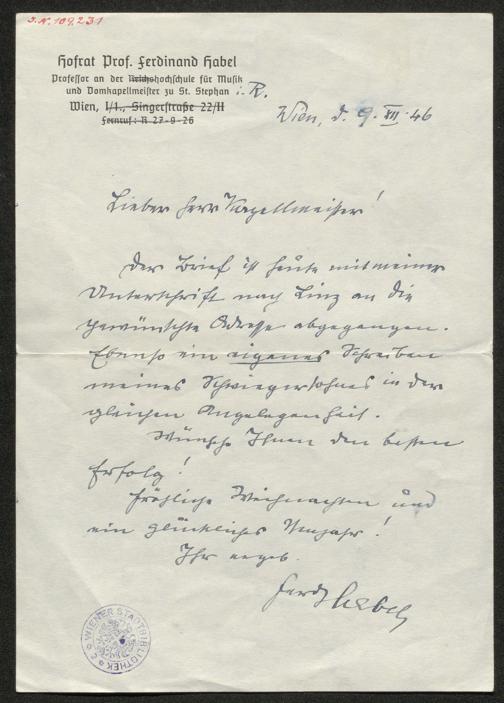 J.N. 109.231
Hofrat Prof. Ferdinand Habel
Professor an der Reichshochschule für Musik
und Domkapellmeister zu St. Stephan i. R.
Wien, I/1., Singerstraße 22/II
Fernruf: R 27-9-26
Wien, d. 9. XII. 46
Lieber Herr Kapellmeister!
Der Brief ist heute mit meiner
Unterschrift nach Linz an die
gewünschte Adresse abgegangen.
Ebenso ein eigenes Schreiben
meines Schwiegersohnes in der
gleichen Angelegenheit.
Wünsche Ihnen den besten
Erfolg!
Fröhliche Weihnachten und
ein glückliches Neujahr!
Ihr ergeb.
Ferd Habel
WIENER STADTBIBLIOTHEK